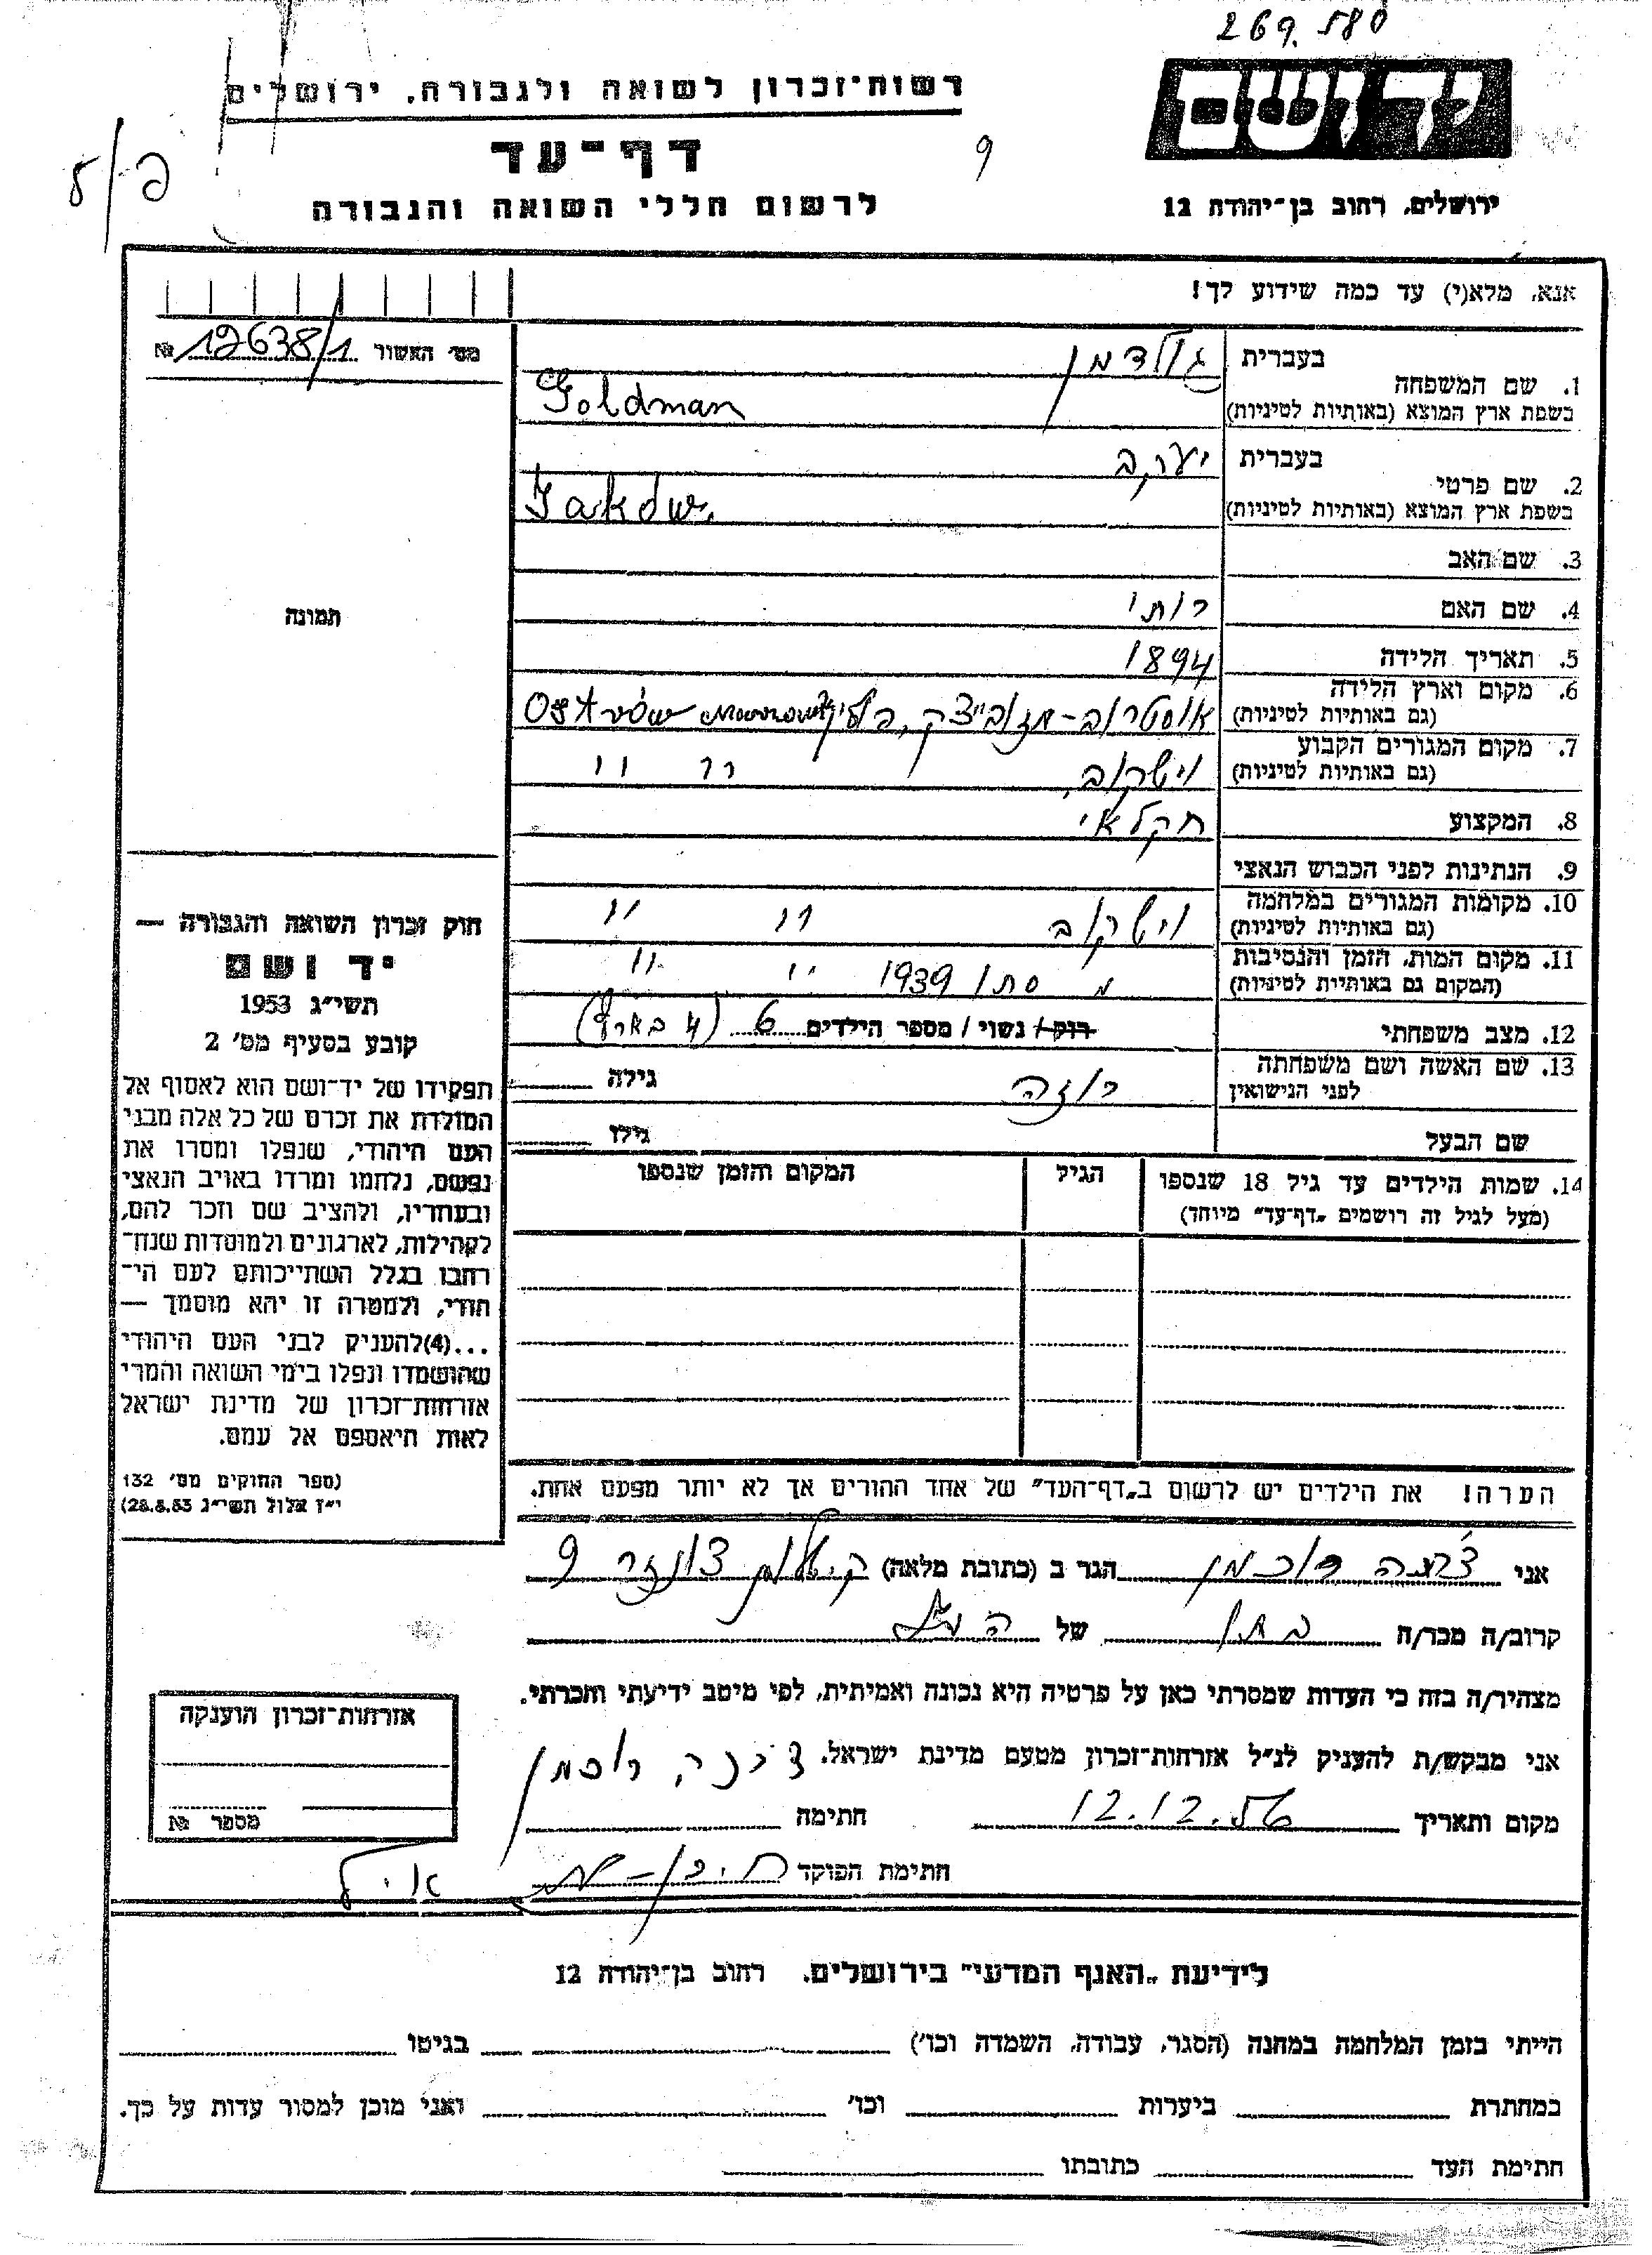 269.580
רשות־זכרון לשואה ולגבורה, ירושלים
דף־עד
לרשום חללי השואה והגבורה
9
יד ושם
ירושלים, רחוב בן־יהודה 12
אנא, מלא(י) עד כמה שידוע לך!
מס' האשור 12638/1 №
1. שם המשפחה בעברית גולדמן
בשפת ארץ המוצא (באותיות לטיניות) Goldman
2. שם פרטי בעברית יעקב
בשפת ארץ המוצא (באותיות לטיניות) Jaków
3. שם האב
4. שם האם
5. תאריך הלידה 1894
6. מקום וארץ הלידה (גם באותיות לטיניות) אוסטרוב-מזוביצק, Ostrów
7. מקום המגורים הקבוע (גם באותיות לטיניות) וישקוב, " "
8. המקצוע חקלאי
9. הנתינות לפני הכבוש הנאצי
10. מקומות המגורים במלחמה (גם באותיות לטיניות) וישקוב " "
11. מקום המות, הזמן והנסיבות (המקום גם באותיות לטיניות) 1939 " "
12. מצב משפחתי רוק / נשוי / מספר הילדים 6 (4 בארץ)
13. שם האשה ושם משפחתה לפני הנישואין רוזה גילה
שם הבעל גילו
14. שמות הילדים עד גיל 18 שנספו הגיל המקום והזמן שנספו
(מעל לגיל זה רושמים "דף־עד" מיוחד)
הערה! את הילדים יש לרשום ב"דף־העד" של אחד ההורים אך לא יותר מפעם אחת.
תמונה
חוק זכרון השואה והגבורה —
יד ושם
תשי"ג 1953
קובע בסעיף מס' 2
תפקידו של יד־ושם הוא לאסוף אל
המולדת את זכרם של כל אלה מבני
העם היהודי, שנפלו ומסרו את
נפשם, נלחמו ומרדו באויב הנאצי
ובעוזריו, ולהציב שם וזכר להם,
לקהילות, לארגונים ולמוסדות שנח־
רבו בגלל השתייכותם לעם הי־
הודי, ולמטרה זו יהא מוסמך —
...(4)להעניק לבני העם היהודי
שהושמדו ונפלו בימי השואה והמרי
אזרחות־זכרון של מדינת ישראל
לאות היאספם אל עמם.
(ספר החוקים מס' 132
י"ז אלול תשי"ג 28.8.53)
אני רוכמן הגר ב (כתובת מלאה) 9
קרוב/ה מכר/ה בתו של
מצהיר/ה בזה כי העדות שמסרתי כאן על פרטיה היא נכונה ואמיתית, לפי מיטב ידיעתי והכרתי.
אני מבקש/ת להעניק לנ"ל אזרחות־זכרון מטעם מדינת ישראל. רוכמן
מקום ותאריך 12.12.56 חתימה
חתימת הפוקד
אזרחות־זכרון הוענקה
מספר №
לידיעת "האגף המדעי" בירושלים, רחוב בן־יהודה 12
הייתי בזמן המלחמה במחנה (הסגר, עבודה, השמדה וכו') בגיטו
במחתרת ביערות וכו' ואני מוכן למסור עדות על כך.
חתימת העד כתובתו